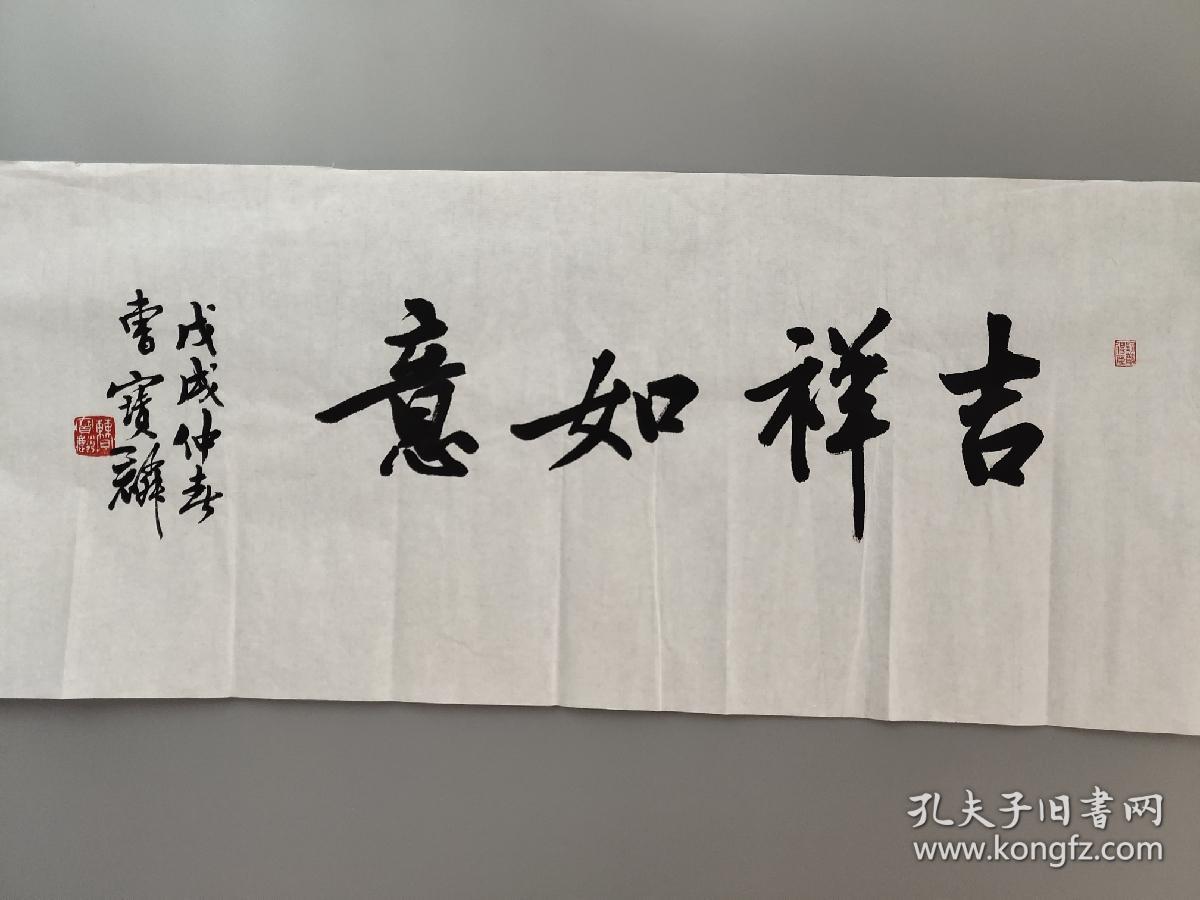 吉祥如意
戊戌仲春
曹寶麟
孔夫子旧书网
www.kongfz.com